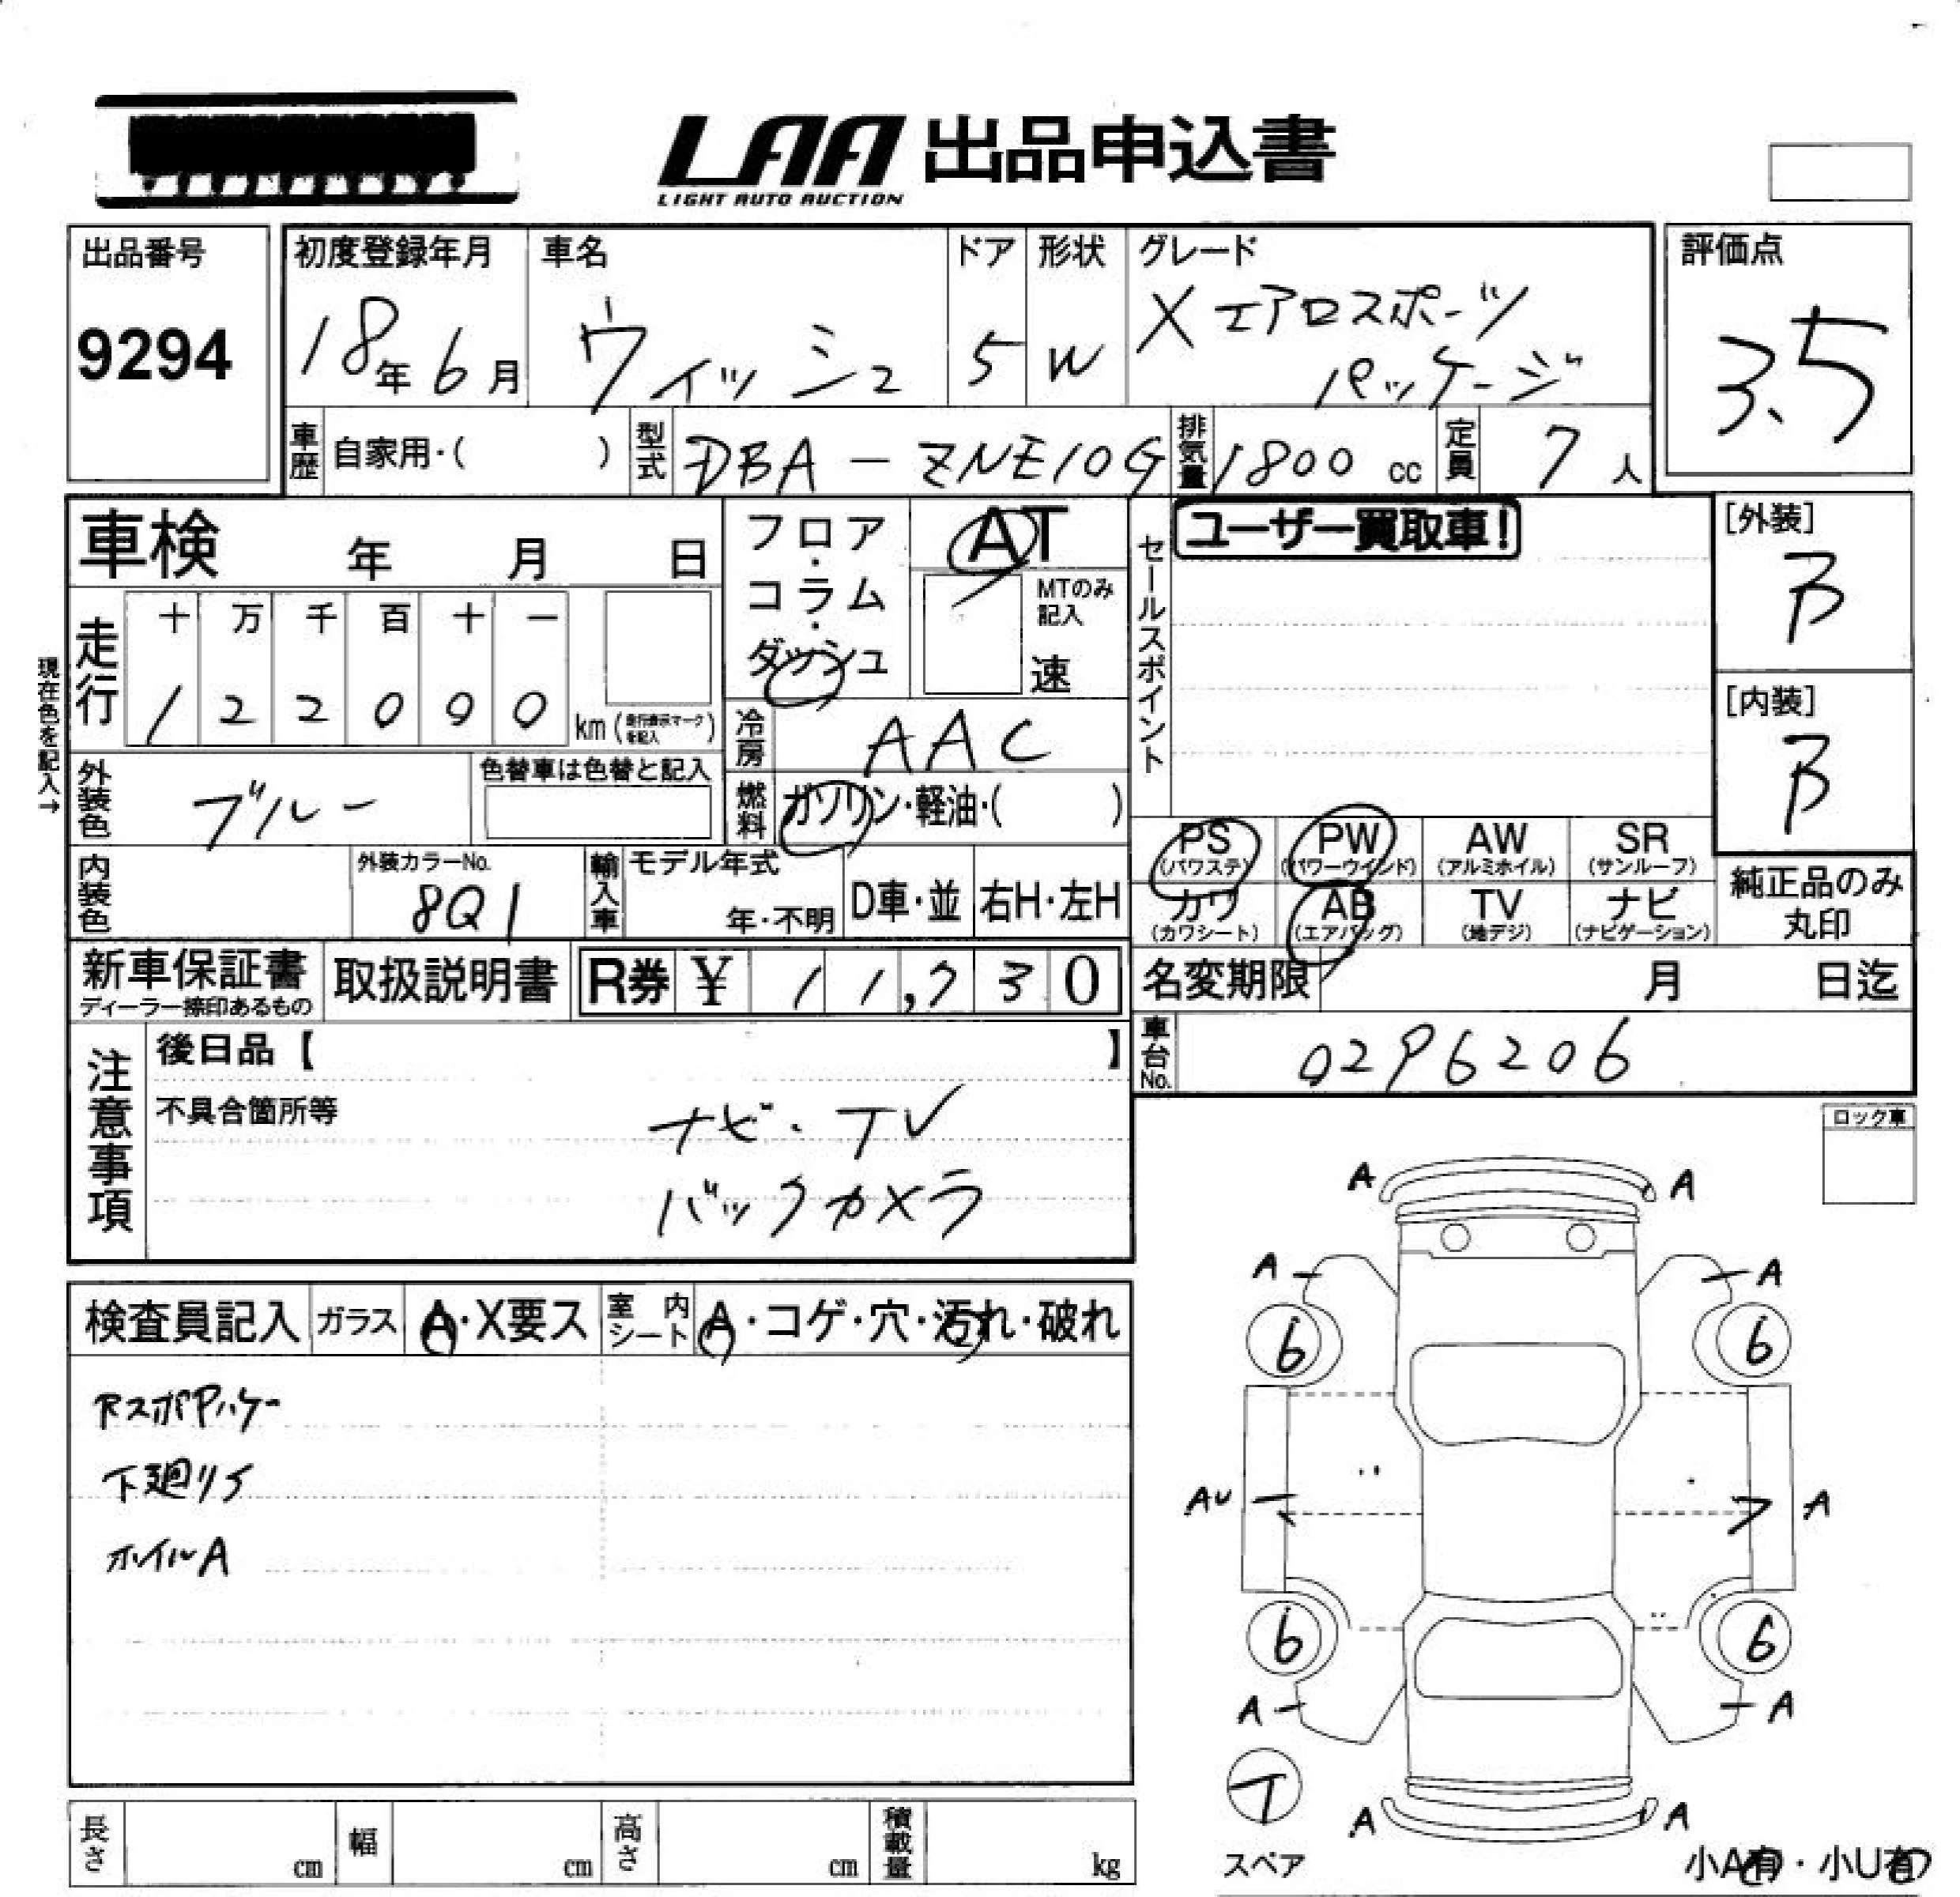 LAA 出品申込書
LIGHT AUTO AUCTION
出品番号 初度登録年月 車名 ドア 形状 グレード 評価点
9294 18年 6月 ウィッシュ 5 W Xエアロスポーツ
パッケージ 3.5
車歴 自家用・( ) 型式 DBA-ZNE10G 排気量 1800 cc 定員 7 人
車検 年 月 日 フロア・コラム・ダッシュ AT MTのみ記入 速
セールスポイント ユーザー買取車!
[外装] B
[内装] B
現在色を記入→
走行 十 万 千 百 十 一
1 2 2 0 0 0 km (走行表示マークを記入)
冷房 AAC
外装色 ブルー 色替車は色替と記入 燃料 ガソリン・軽油・( )
PS (パワステ) PW (パワーウインド) AW (アルミホイル) SR (サンルーフ)
カワ (カワシート) AB (エアバッグ) TV (地デジ) ナビ (ナビゲーション) 純正品のみ丸印
内装色 外装カラーNo. 8Q1 輸入車 モデル年式 年・不明 D車・並 右H・左H
新車保証書 ディーラー捺印あるもの 取扱説明書 R券 ¥ 11,730 名変期限 月 日迄
注意事項 後日品【 】 車台No. 0296206
不具合箇所等 ナビ・TV
バックカメラ
ロック車
検査員記入 ガラス A・X要ス 室内シート A・コゲ・穴・汚れ・破れ
下廻りサ
ホイルA
A A
A A
6 6
AU A
6 6
A A
T
A A
スペア 小A有・小U有
長さ cm 幅 cm 高さ cm 積載量 kg